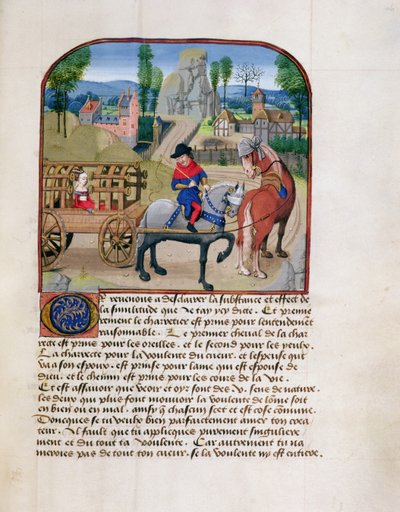 Or revenons a desclairer la substance et effect de
la similitude que Je tay icy dicte. Et premie
rement le charretier est prins pour lentendement
raisonnable. Le premier cheval de la char
rete est prins pour les oreilles. et le second pour les yeulx.
La charrete pour la voulente du cueur. et lespouse qui
va a son espoux. est prinse pour lame qui est espouse de
dieu. et le chemin est prins pour les cours de la vie.
Et est assavoir que veoir et oyr sont des .v. sens de nature.
les deux qui plus font mouvoir la voulente de lo͞me soit
en bien ou en mal. ainsy q͞ chascun scet et est cose co͞mune.
Doncques se tu veulx bien parfaictement amer ton crea
teur. Il fault que tu applicques purement singuliere
ment et du tout ta voulente. Car autrement tu na
meroies pas de tout ton cueur. se la voulente ny est entiere.